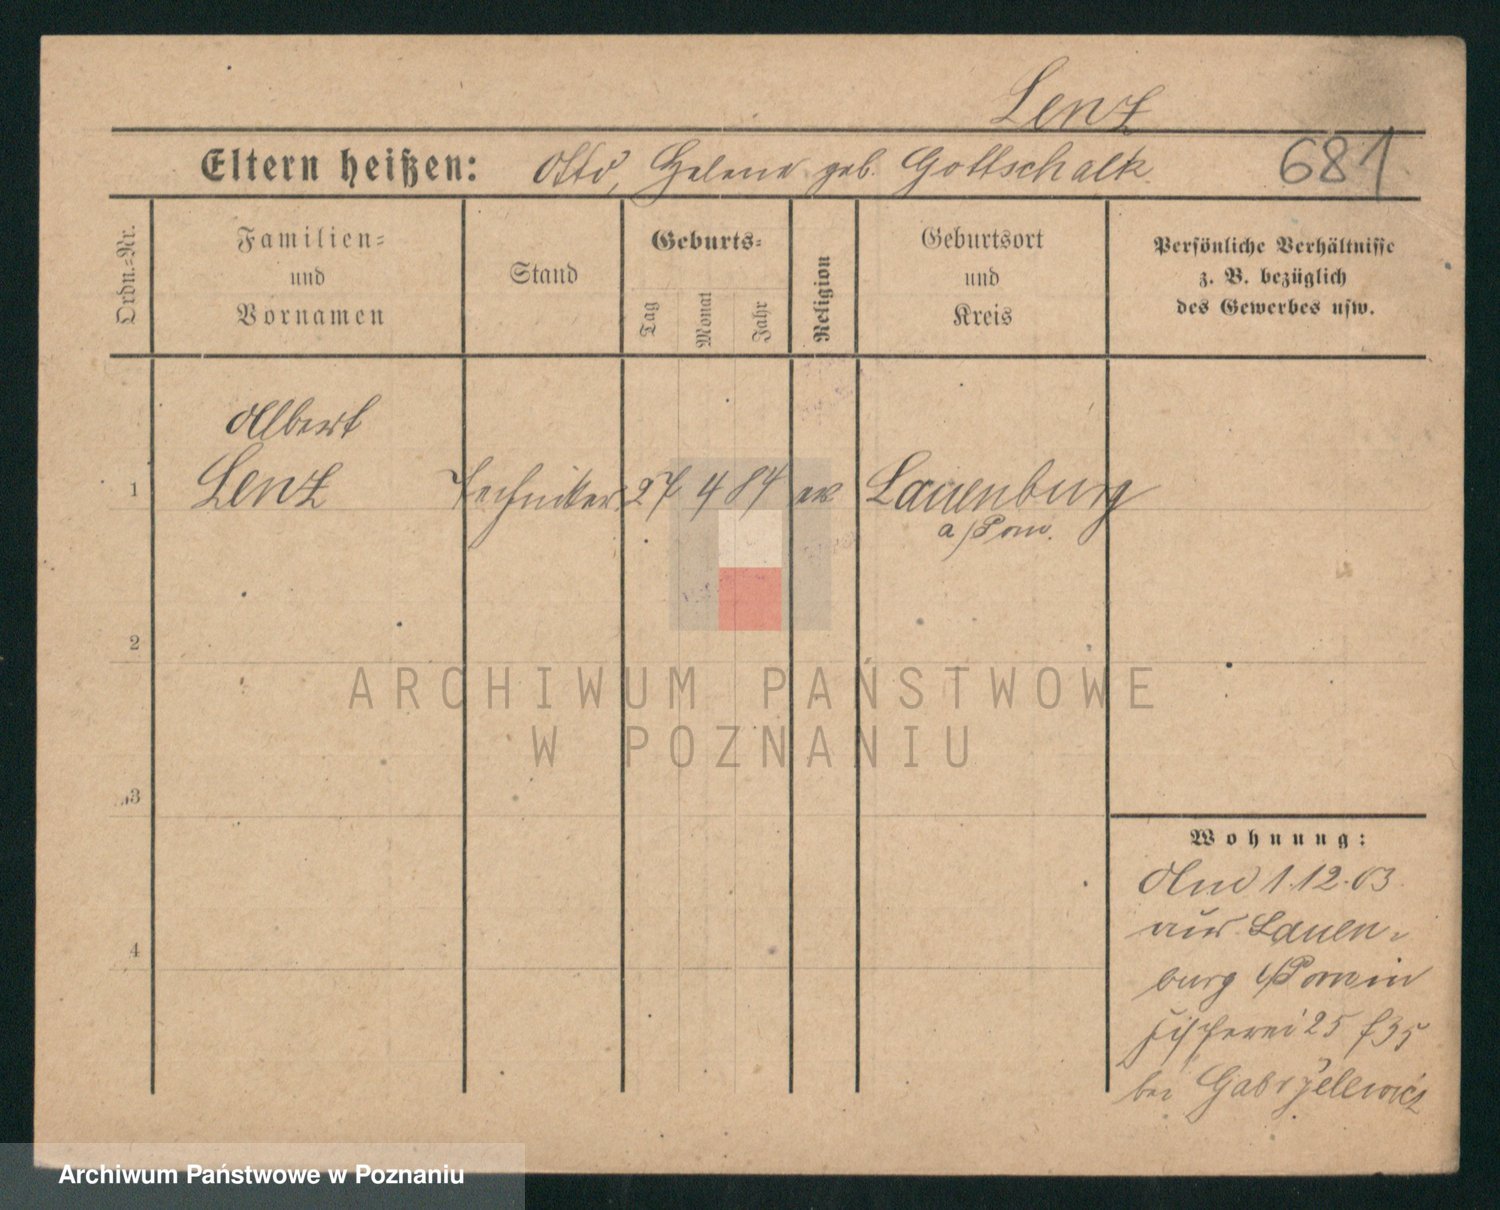 Lenz
Eltern heißen: Otto, Helene geb. Gottschalk
681
Ordn.-Nr.
Familien-
und
Vornamen
Stand
Geburts-
Tag
Monat
Jahr
Religion
Geburtsort
und
Kreis
Persönliche Verhältnisse
z. B. bezüglich
des Gewerbes usw.
Albert
1 Lenz Techniker 27 4 84 ev Lauenburg
a/Pom.
2
3
4
ARCHIWUM PAŃSTWOWE
W POZNANIU
Wohnung:
Am 1.12.03
aus Lauen-
burg i/Pom in
Fischerei 25
bei
Archiwum Państwowe w Poznaniu